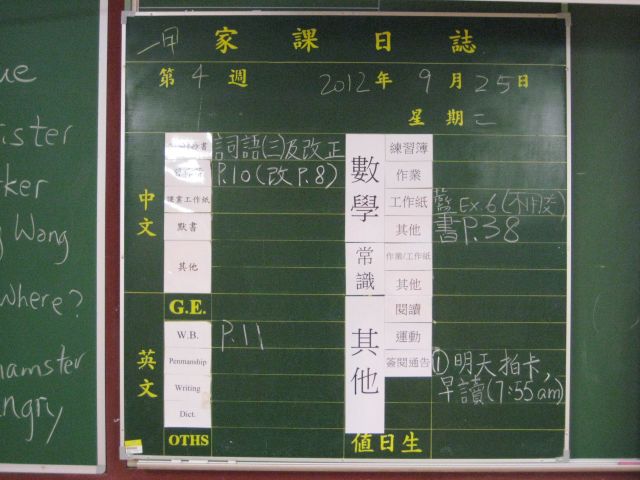 ue
ister
rker
Wang
Where?
hamster
ngry
一甲 家課日誌
第 4 週 2012 年 9 月 25 日
星期二
中文
詞語(三)及改正
P.10(改 P.8)
課業工作紙
默書
其他
G.E.
英文
W.B. P.11
Penmanship
Writing
Dict.
OTHS
數學
練習簿
作業
工作紙 藍 Ex.6(不用交)
其他 書P.38
常識
作業/工作紙
其他
其他
閱讀
運動
簽閱通告 ①明天拍卡,
早讀(7:55am)
值日生